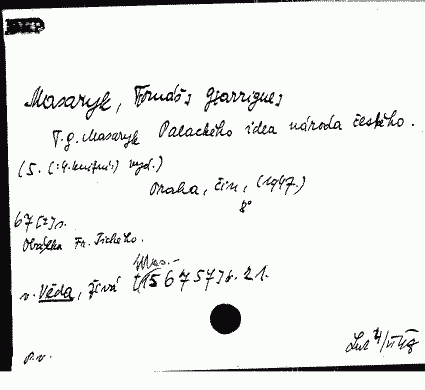 Masaryk, Tomáš Garrigue
T.G. Masaryk Palackého idea národa českého.
(5. (:4. knižní:) vyd.)
Praha, Čin, (1947.)
8°
67 [2] s.
Obálka Fr. Tichého.
v. Věda, živá sv. 21.
p.v.